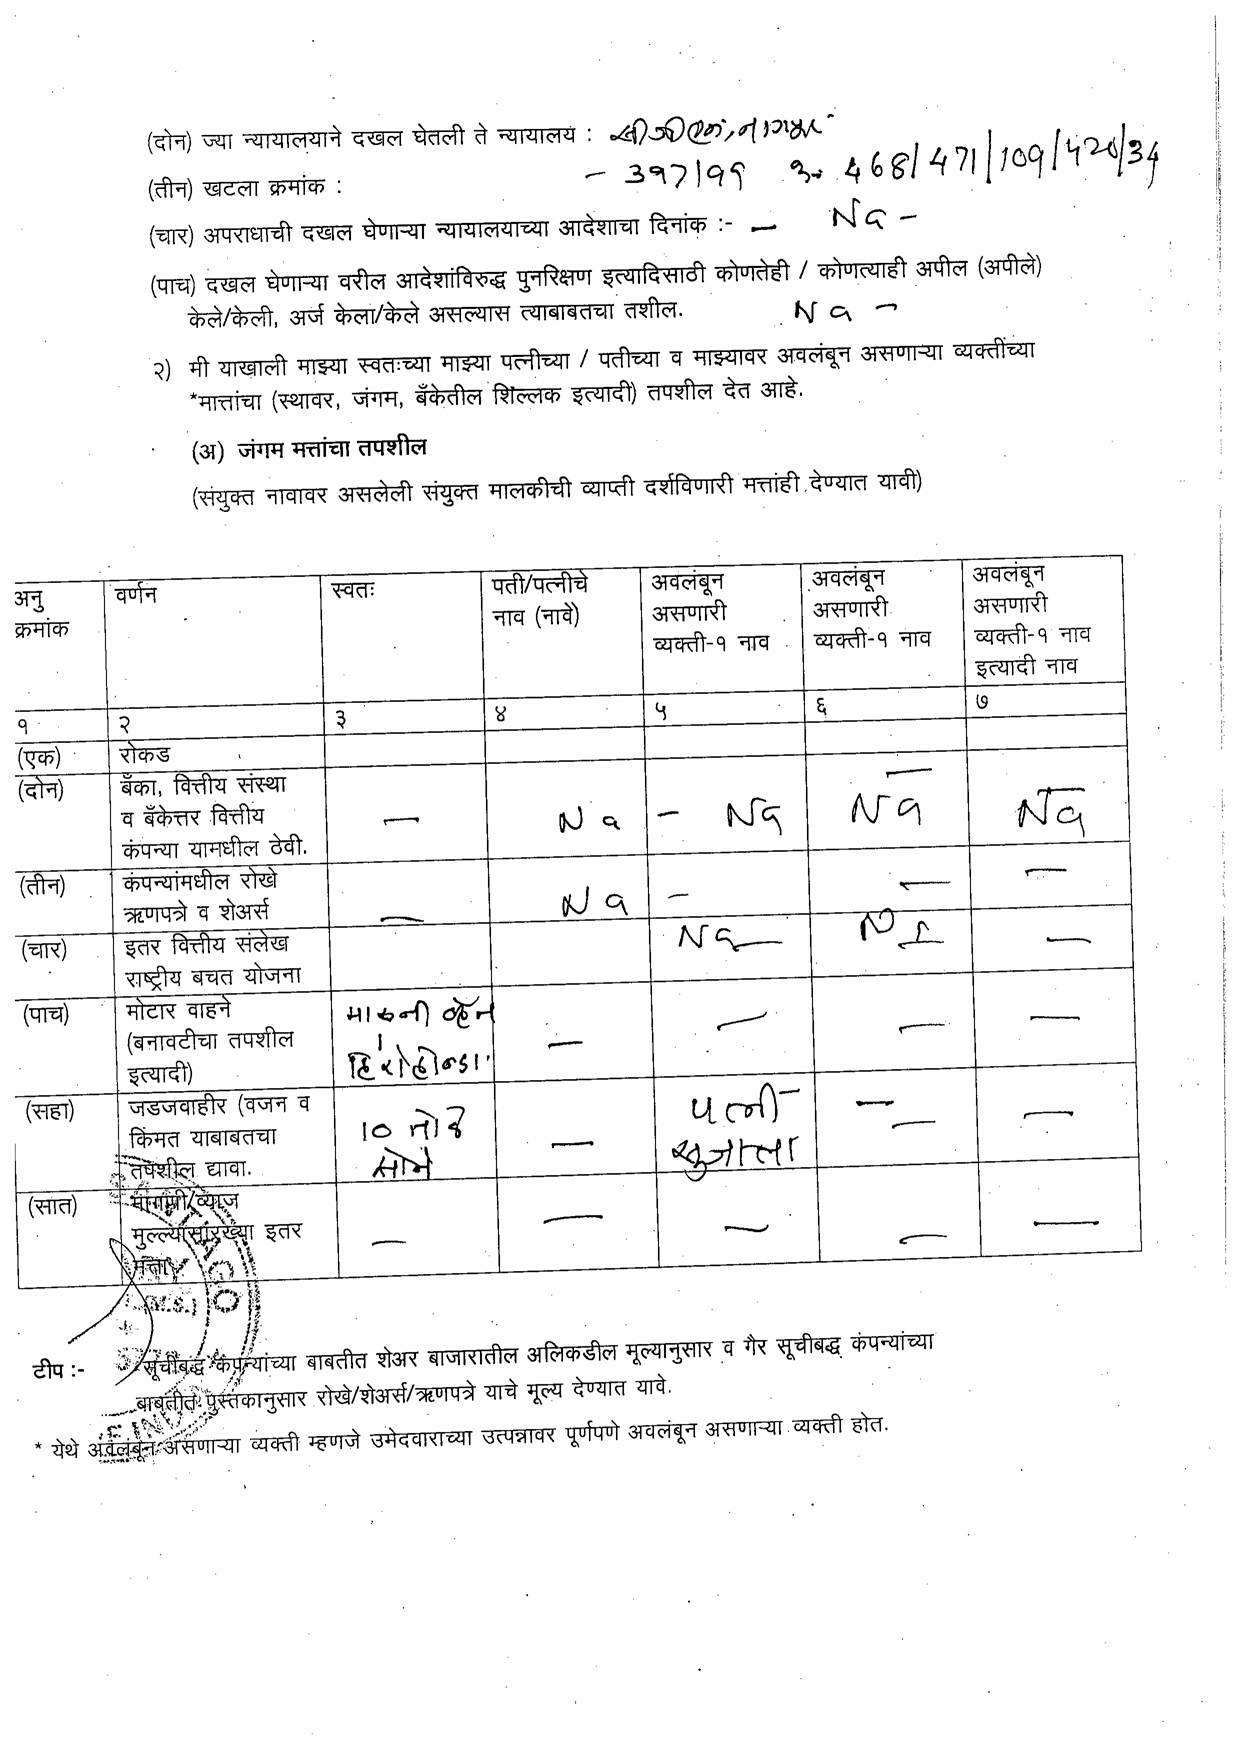 (दोन) ज्या न्यायालयाने दखल घेतली ते न्यायालय :
(तीन) खटला क्रमांक : - 397/99 468/471/109/420/34
(चार) अपराधाची दखल घेणाऱ्या न्यायालयाच्या आदेशाचा दिनांक :- — Na -
(पाच) दखल घेणाऱ्या वरील आदेशांविरुद्ध पुनरिक्षण इत्यादिसाठी कोणतेही / कोणत्याही अपील (अपीले)
केले/केली, अर्ज केला/केले असल्यास त्याबाबतचा तशील. Na -
२) मी याखाली माझ्या स्वतःच्या माझ्या पत्नीच्या / पतीच्या व माझ्यावर अवलंबून असणाऱ्या व्यक्तींच्या
*मात्तांचा (स्थावर, जंगम, बँकेतील शिल्लक इत्यादी) तपशील देत आहे.
(अ) जंगम मत्तांचा तपशील
(संयुक्त नावावर असलेली संयुक्त मालकीची व्याप्ती दर्शविणारी मत्तांही देण्यात यावी)
अनु क्रमांक वर्णन स्वतः पती/पत्नीचे नाव (नावे) अवलंबून असणारी व्यक्ती-१ नाव अवलंबून असणारी व्यक्ती-१ नाव अवलंबून असणारी व्यक्ती-१ नाव इत्यादी नाव
१ २ ३ ४ ५ ६ ७
(एक) रोकड
(दोन) बँका, वित्तीय संस्था — Na - Na — Na — Na
व बँकेत्तर वित्तीय
कंपन्या यामधील ठेवी.
(तीन) कंपन्यांमधील रोखे — Na - — —
ऋणपत्रे व शेअर्स
(चार) इतर वित्तीय संलेख Na — —
राष्ट्रीय बचत योजना
(पाच) मोटार वाहने मारुती व्हॅन — — — —
(बनावटीचा तपशील हिरोहोन्डा
इत्यादी)
(सहा) जडजवाहीर (वजन व 10 तोळे — पत्नी — — —
किंमत याबाबतचा सोने सुजाता
तपशील द्यावा.
(सात) मागणी/व्याज — — — — —
मुल्ल्यासारख्या इतर
मत्ता
(M.S.)
टीप :- सूचीबद्ध कंपन्यांच्या बाबतीत शेअर बाजारातील अलिकडील मूल्यानुसार व गैर सूचीबद्ध कंपन्यांच्या
बाबतीत पुस्तकानुसार रोखे/शेअर्स/ऋणपत्रे याचे मूल्य देण्यात यावे.
* येथे अवलंबून असणाऱ्या व्यक्ती म्हणजे उमेदवाराच्या उत्पन्नावर पूर्णपणे अवलंबून असणाऱ्या व्यक्ती होत.